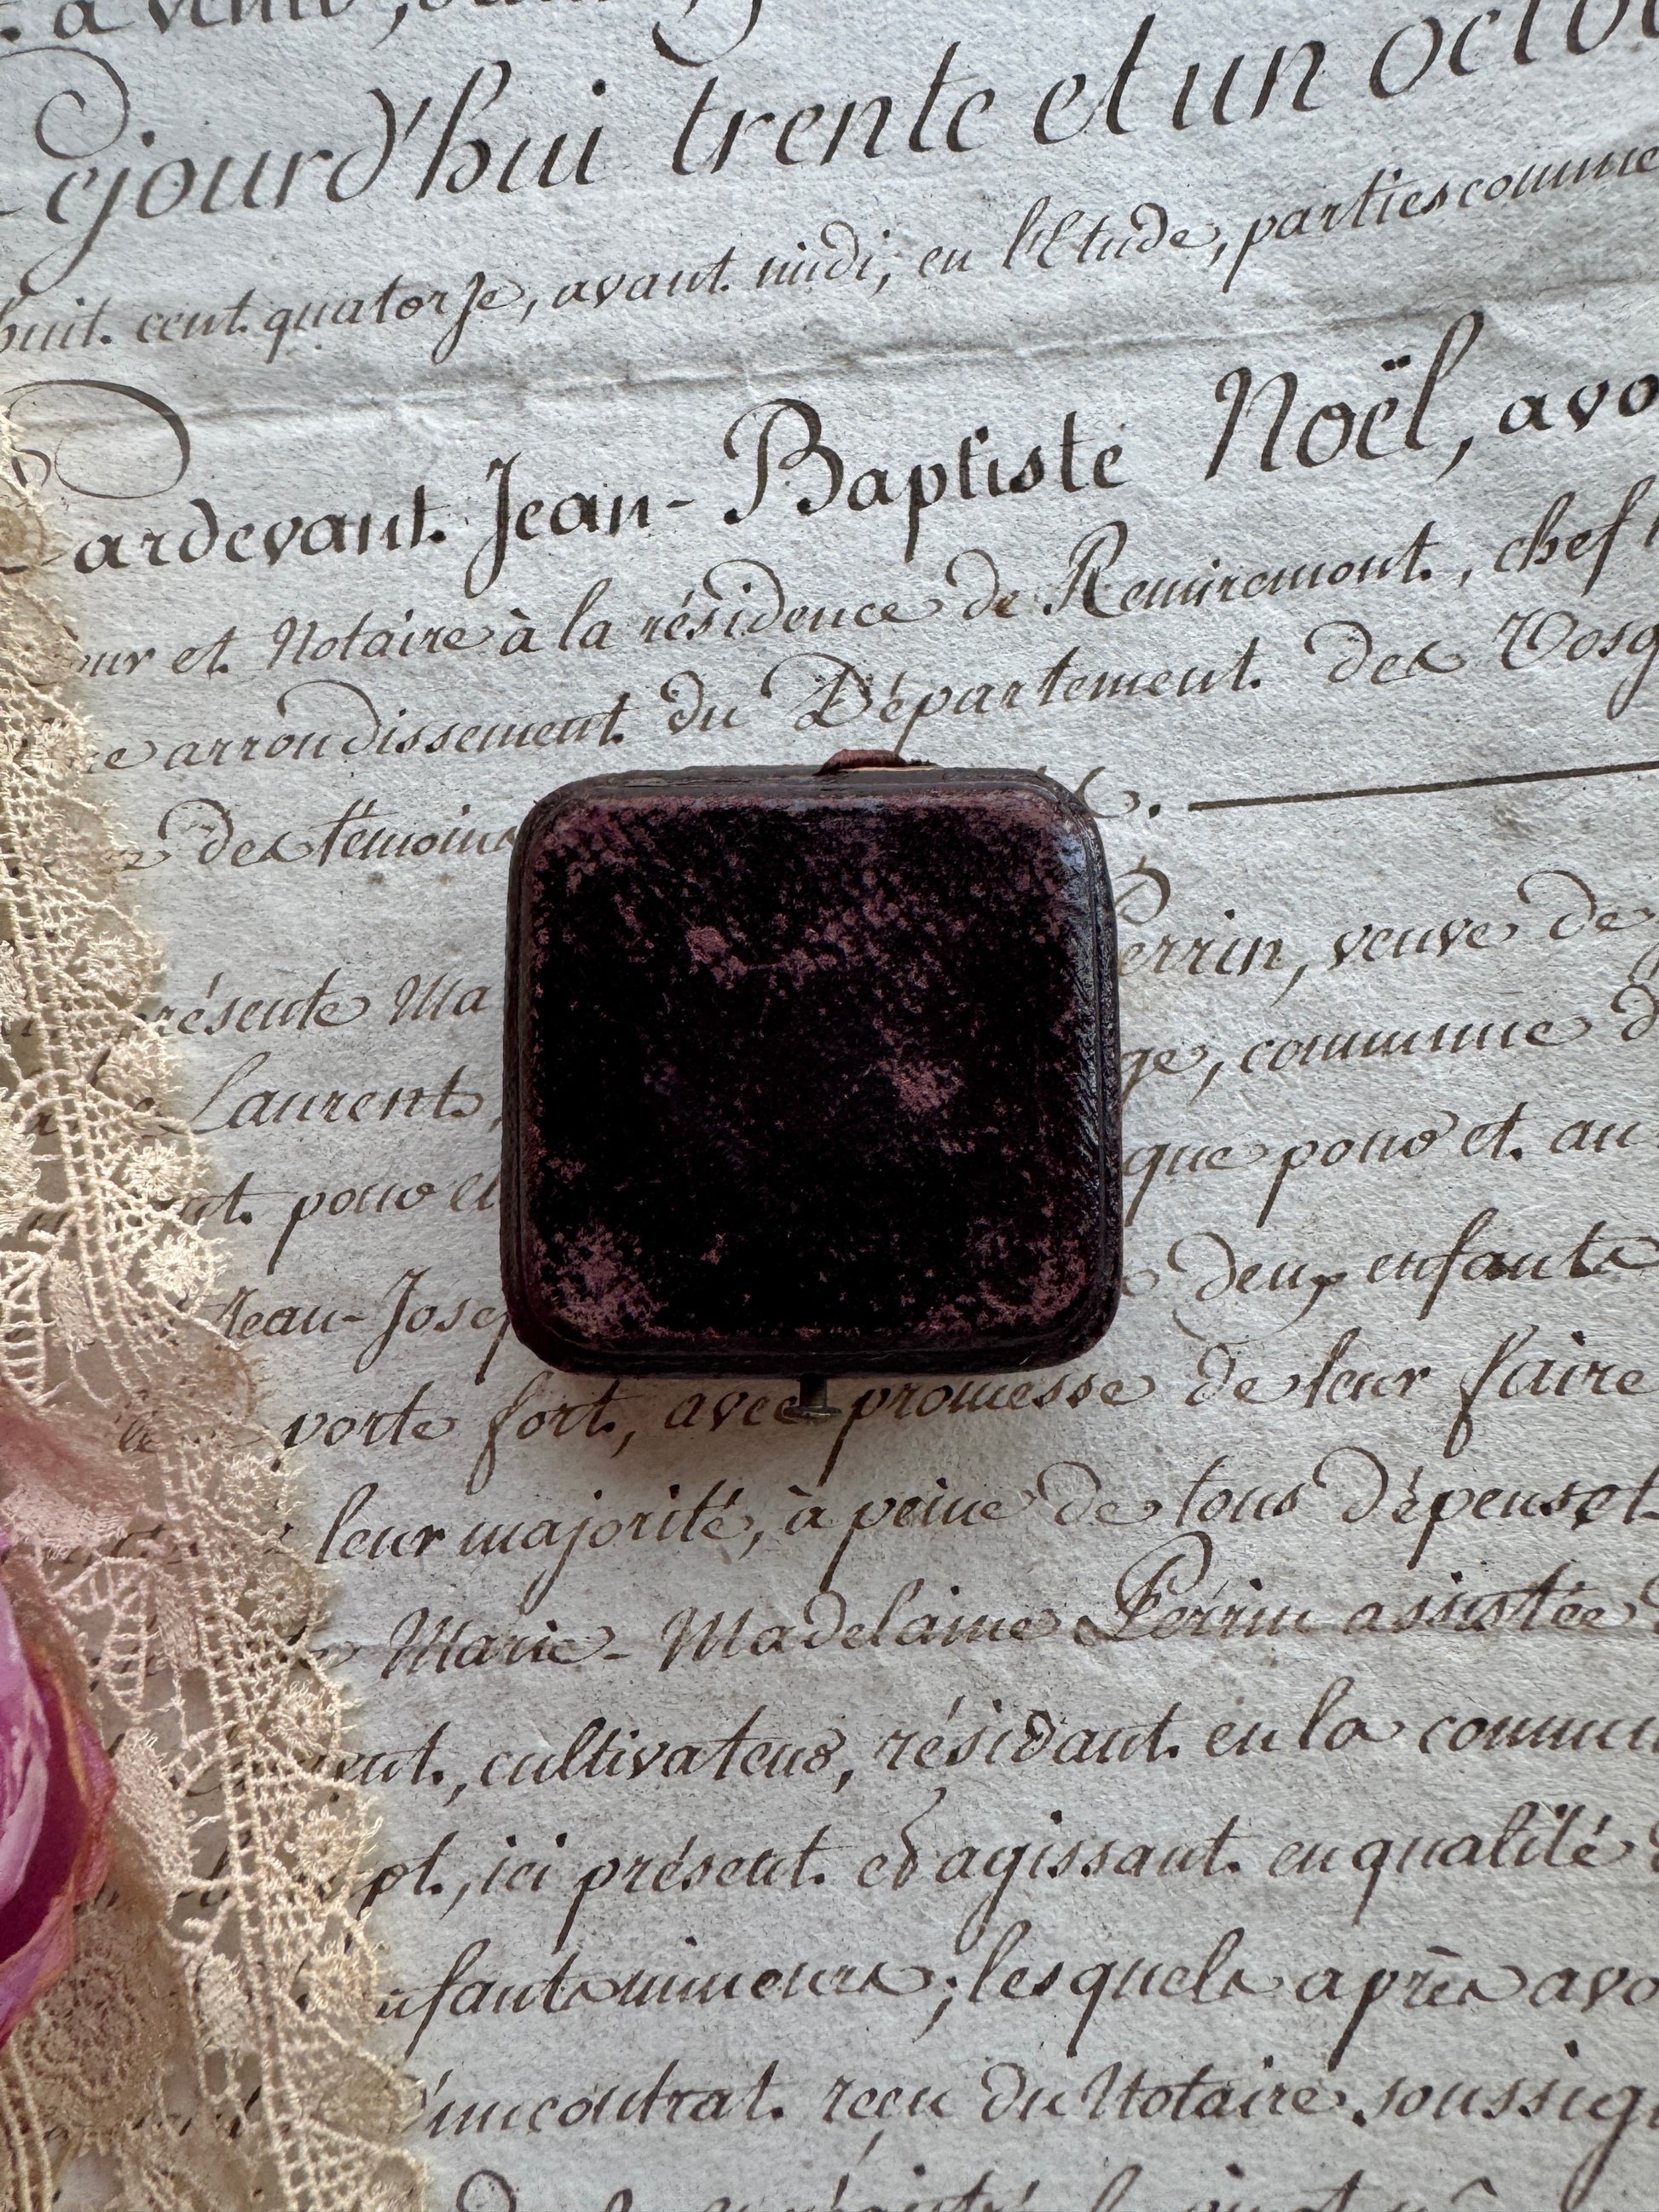 à venir,
Cejourd'hui trente et un octo
huit cent quatorze, avant midi, en l'Etude, parties comme
Pardevant Jean-Baptiste Noël, avo
eur et Notaire à la résidence de Remiremont, chef l
arrondissement du Département des Vosg
des témoins
présente Ma Perrin, veuve de
Laurent, ge, commune d
pour et que pour et au
Jean-Josep deux enfants
porte fort, avec promesse de leur faire
leur majorité, à peine de tous dépens et
Marie-Madelaine Perrin assistée d
ent, cultivateur, résidant en la commun
pt, ici présent et agissant en qualité d
enfants mineurs; lesquels après avo
d'un contrat reçu du Notaire soussig